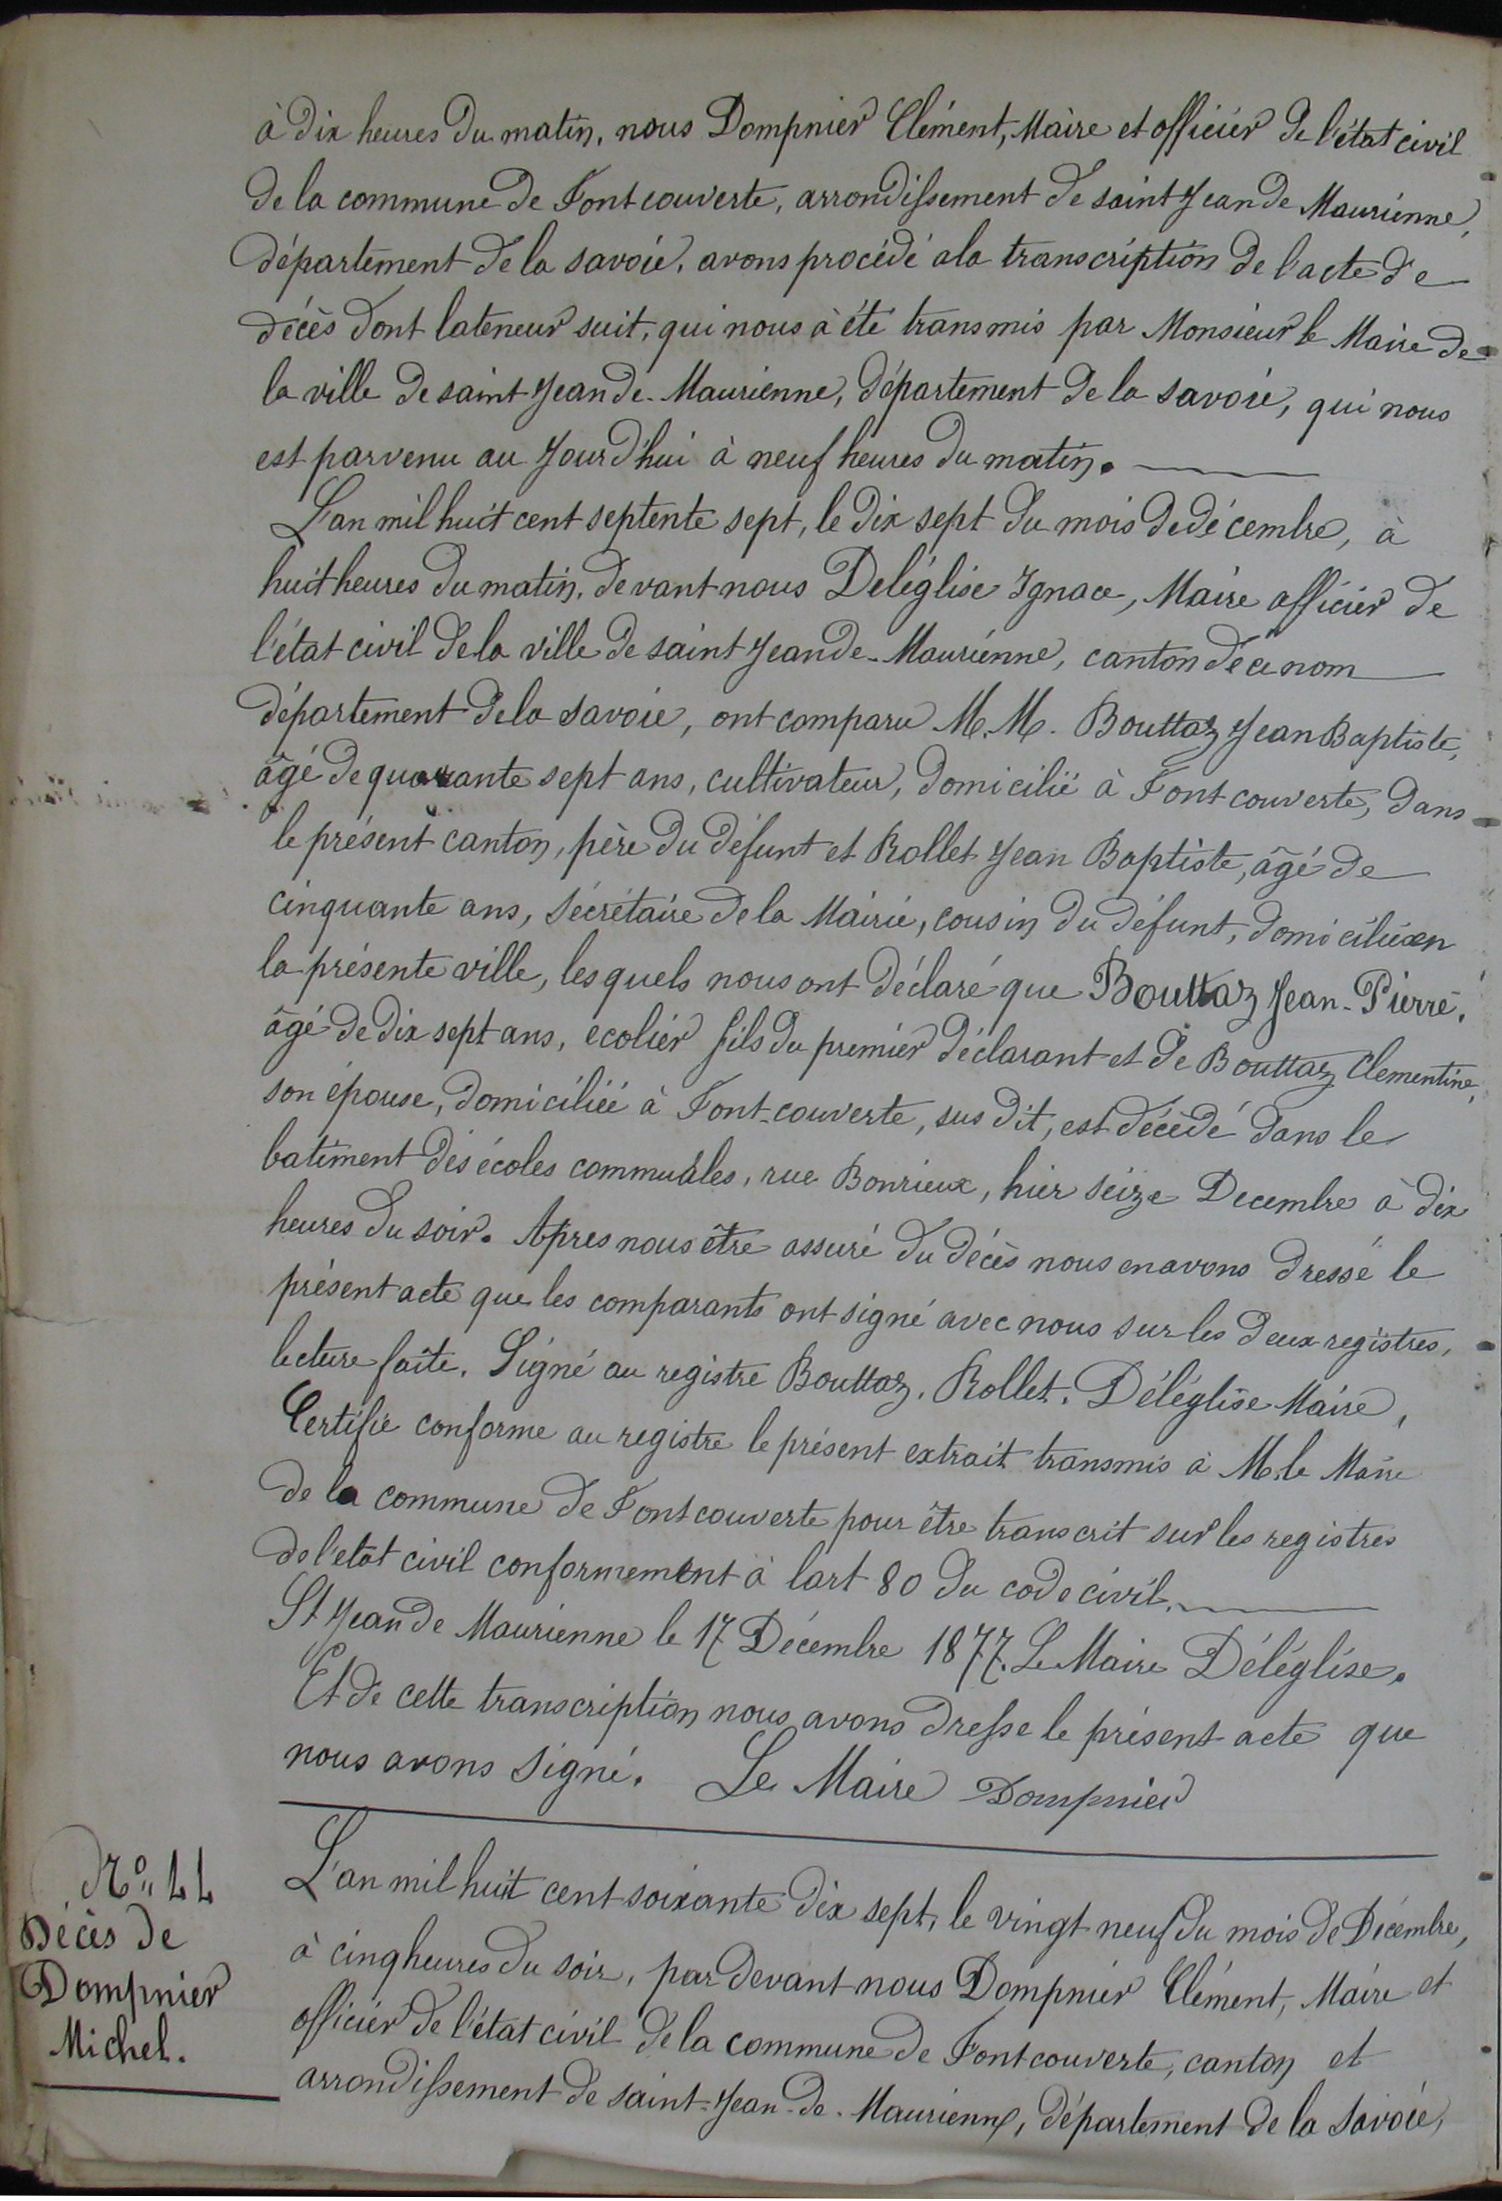 à dix heures du matin, nous Dompnier Clément, Maire et officier de l'état civil
de la commune de Fontcouverte, arrondissement de saint Jean de Maurienne,
département de la savoie, avons procédé a la transcription de l'acte de
décès dont la teneur suit, qui nous à été transmis par Monsieur le Maire de
la ville de saint Jean de-Maurienne, département de la savoie, qui nous
est parvenu au Jourd'hui à neuf heures du matin.
L'an mil huit cent septente sept, le dix sept du mois de décembre, à
huit heures du matin, devant nous Deléglise Ignace, Maire officier de
l'état civil de la ville de saint Jean de-Maurienne, canton de ce nom
département de la savoie, ont comparu M.M. Bouttaz Jean Baptiste,
âgé de quarante sept ans, cultivateur, domicilié à Fontcouverte, dans
le présent canton, père du défunt et Rollet Jean Baptiste, âgé de
cinquante ans, sécrétaire de la Mairie, cousin du défunt, domiciliés en
la présente ville, lesquels nous ont déclaré que Bouttaz Jean-Pierre,
âgé de dix sept ans, ecolier fils du premier déclarant et de Bouttaz Clementine,
son épouse, domiciliée à Font-couverte, sus dit, est décédé dans le
batiment des écoles commuales, rue Bonrieux, hier seize Decembre à dix
heures du soir. Apres nous être assuré du décès nous en avons dressé le
présent acte que les comparants ont signé avec nous sur les deux registres,
lecture faite. Signé au registre Bouttaz, Rollet, Déléglise Maire,
Certifié conforme au registre le présent extrait transmis à M. le Maire
de la commune de Fontcouverte pour être transcrit sur les registres
de l'etat civil conformement à l'art 80 du code civil.
St Jean de Maurienne le 17 Décembre 1877. Le Maire Déléglise.
Et de cette transcription nous avons dressé le présent acte que
nous avons signé. Le Maire Dompnier
N° 44
Décès de
Dompnier
Michel.
L'an mil huit cent soixante dix sept, le vingt neuf du mois de Décembre,
à cinq heures du soir, par devant nous Dompnier Clément, Maire et
officier de l'état civil de la commune de Fontcouverte, canton et
arrondissement de saint-Jean-de-Maurienne, département de la Savoie,